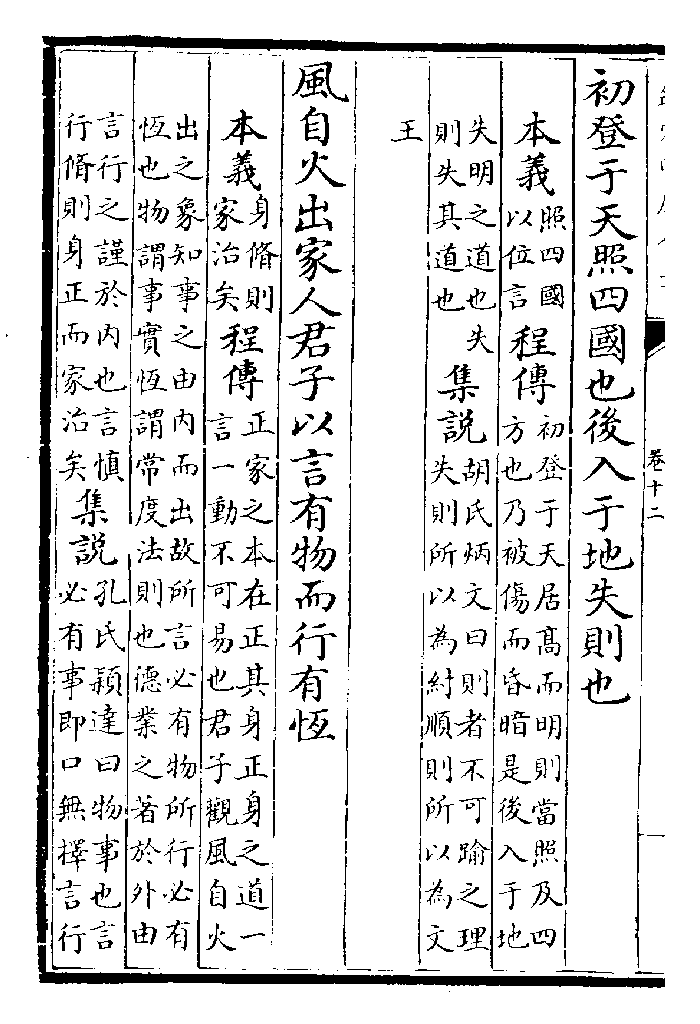 卷十二
初登于天照四國也後入于地失則也
本義照四國以位言程傳初登于天居高而明則當照及四方也乃被傷而昏暗是後入于地
失明之道也失則失其道也集説胡氏炳文曰則者不可踰之理失則所以為紂順則所以為文
王
風自火出家人君子以言有物而行有恆
本義身脩則家治矣程傳正家之本在正其身正身之道一言一動不可易也君子觀風自火
出之象知事之由内而出故所言必有物所行必有恆也物謂事實恆謂常度法則也德業之著於外由
言行之謹於内也言慎行脩則身正而家治矣集説孔氏穎達曰物事也言必有事即口無擇言行